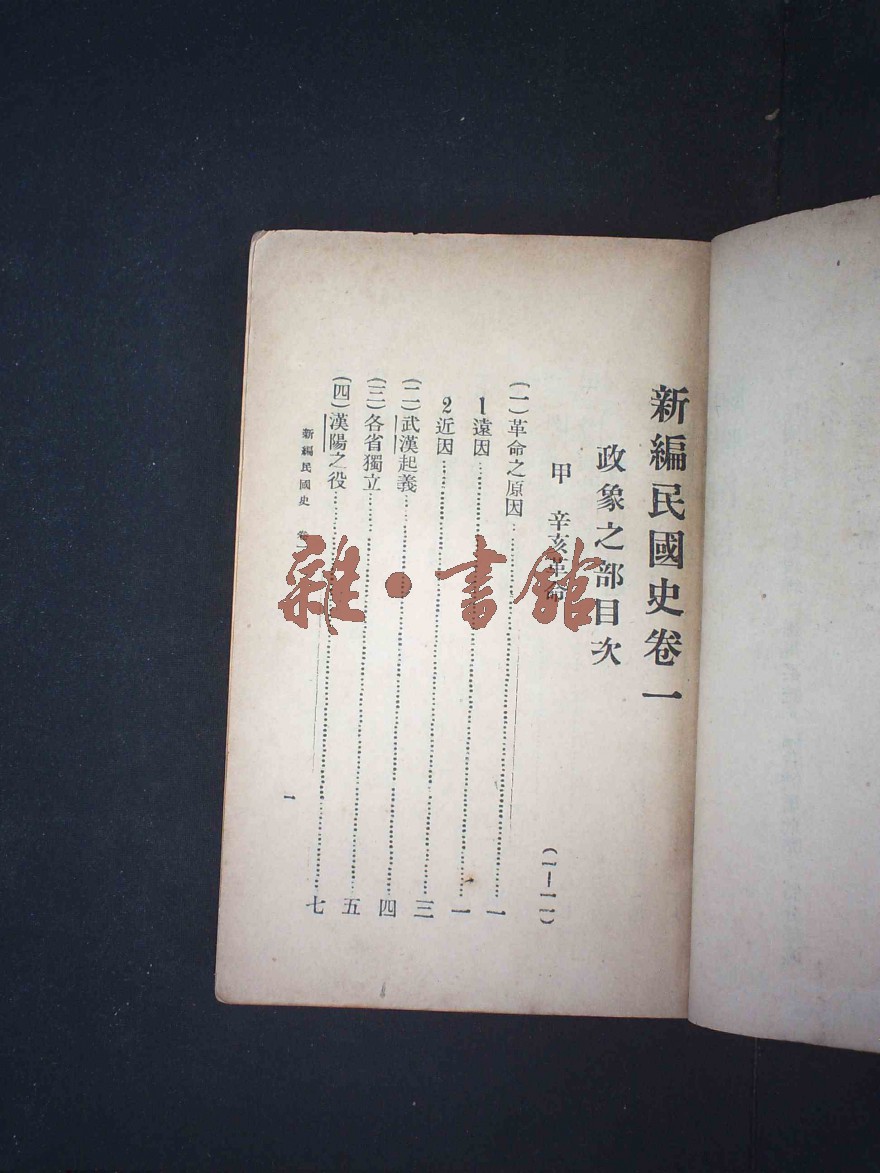 新編民國史卷一
政象之部目次
甲　辛亥革命　(一—一一)
(一)革命之原因……一
1遠因……一
2近因……三
(二)武漢起義……四
(三)各省獨立……五
(四)漢陽之役……七
新編民國史　卷一
一
雜·書館